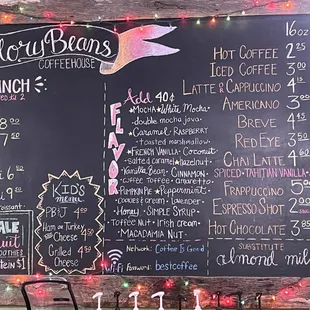 loryBeans
COFFEEHOUSE
NCH
KIDS
MENU
PB&J 4.50
Ham or Turkey
and Cheese
4.50
Grilled 4.50
Cheese
FLAVOR
Add 40¢
Mocha White Mocha
double mocha java
Caramel Raspberry
toasted marshmallow
French Vanilla Coconut
Salted caramel hazelnut
Vanilla Bean Cinnamon
Coffee Toffee Amaretto
Pumpkin Pie Peppermint
cookies & cream Lavender
Honey Simple Syrup
Toffee Nut Irish cream
Macadamia Nut
Network: Coffee Is Good
Wi Fi Password: bestcoffee
16oz
Hot Coffee 2.25
Iced Coffee 3.00
Latte & Cappuccino 4.15
Americano 3.00
Breve 4.45
Red Eye 3.50
Chai Latte 4.00
Spiced • Tahitian Vanilla
Frappuccino 5.00
Espresso Shot 2.00
Hot Chocolate 3.85
Substitute
almond mil